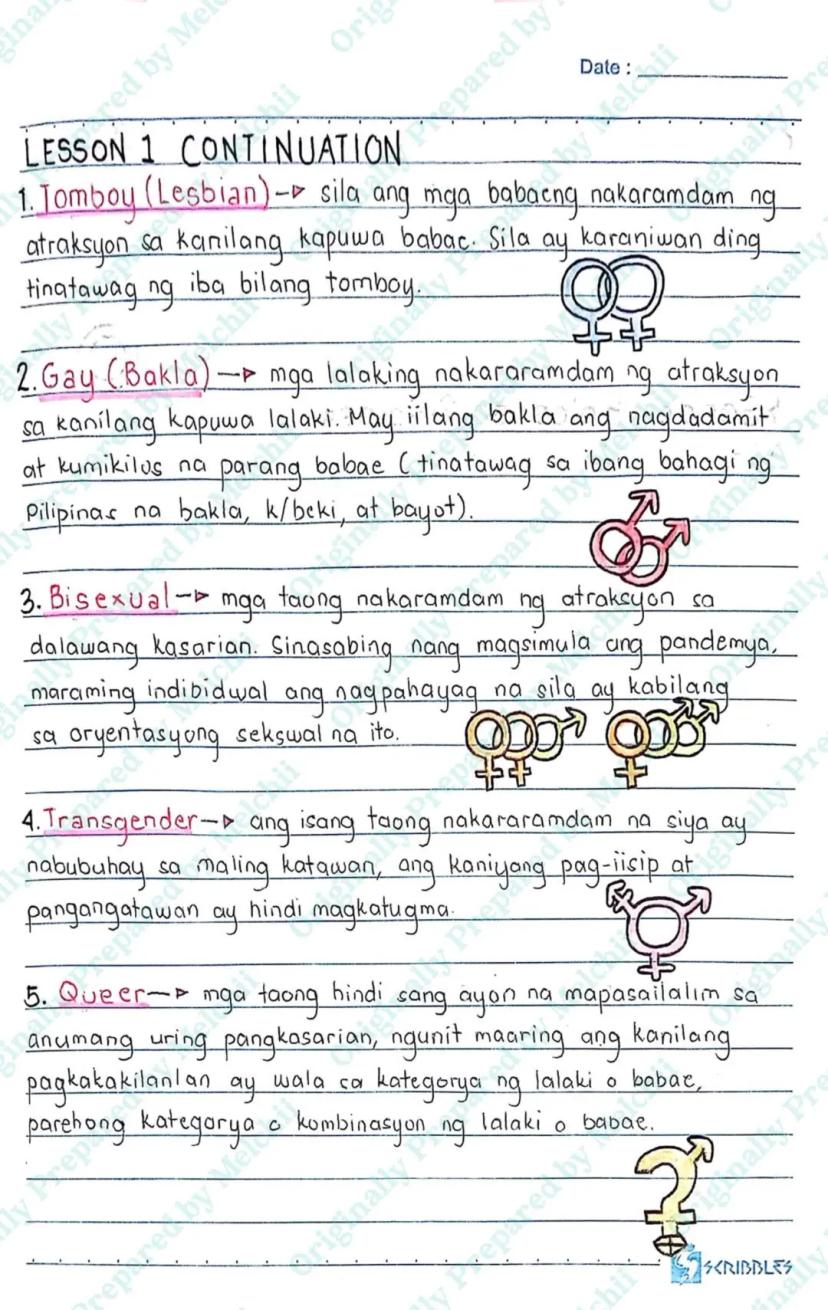 Date :
LESSON 1 CONTINUATION
1. Tomboy (Lesbian) -> sila ang mga babaeng nakaramdam ng
atraksyon sa kanilang kapuwa babae. Sila ay karaniwan ding
tinatawag ng iba bilang tomboy.
2. Gay (Bakla) -> mga lalaking nakararamdam ng atraksyon
sa kanilang kapuwa lalaki. May iilang bakla ang nagdadamit
at kumikilos na parang babae (tinatawag sa ibang bahagi ng
Pilipinas na bakla, k/beki, at bayot).
3. Bisexual -> mga taong nakaramdam ng atraksyon sa
dalawang kasarian. Sinasabing nang magsimula ang pandemya,
maraming indibidwal ang nagpahayag na sila ay kabilang
sa oryentasyong sekswal na ito.
4. Transgender -> ang isang taong nakararamdam na siya ay
nabubuhay sa maling katawan, ang kaniyang pag-iisip at
pangangatawan ay hindi magkatugma.
5. Queer -> mga taong hindi sang ayon na mapasailalim sa
anumang uring pangkasarian, ngunit maaring ang kanilang
pagkakakilanlan ay wala sa kategorya ng lalaki o babae,
parehong kategorya o kombinasyon ng lalaki o babae.
SCRIBBLES
Originally Prepared by Melchii